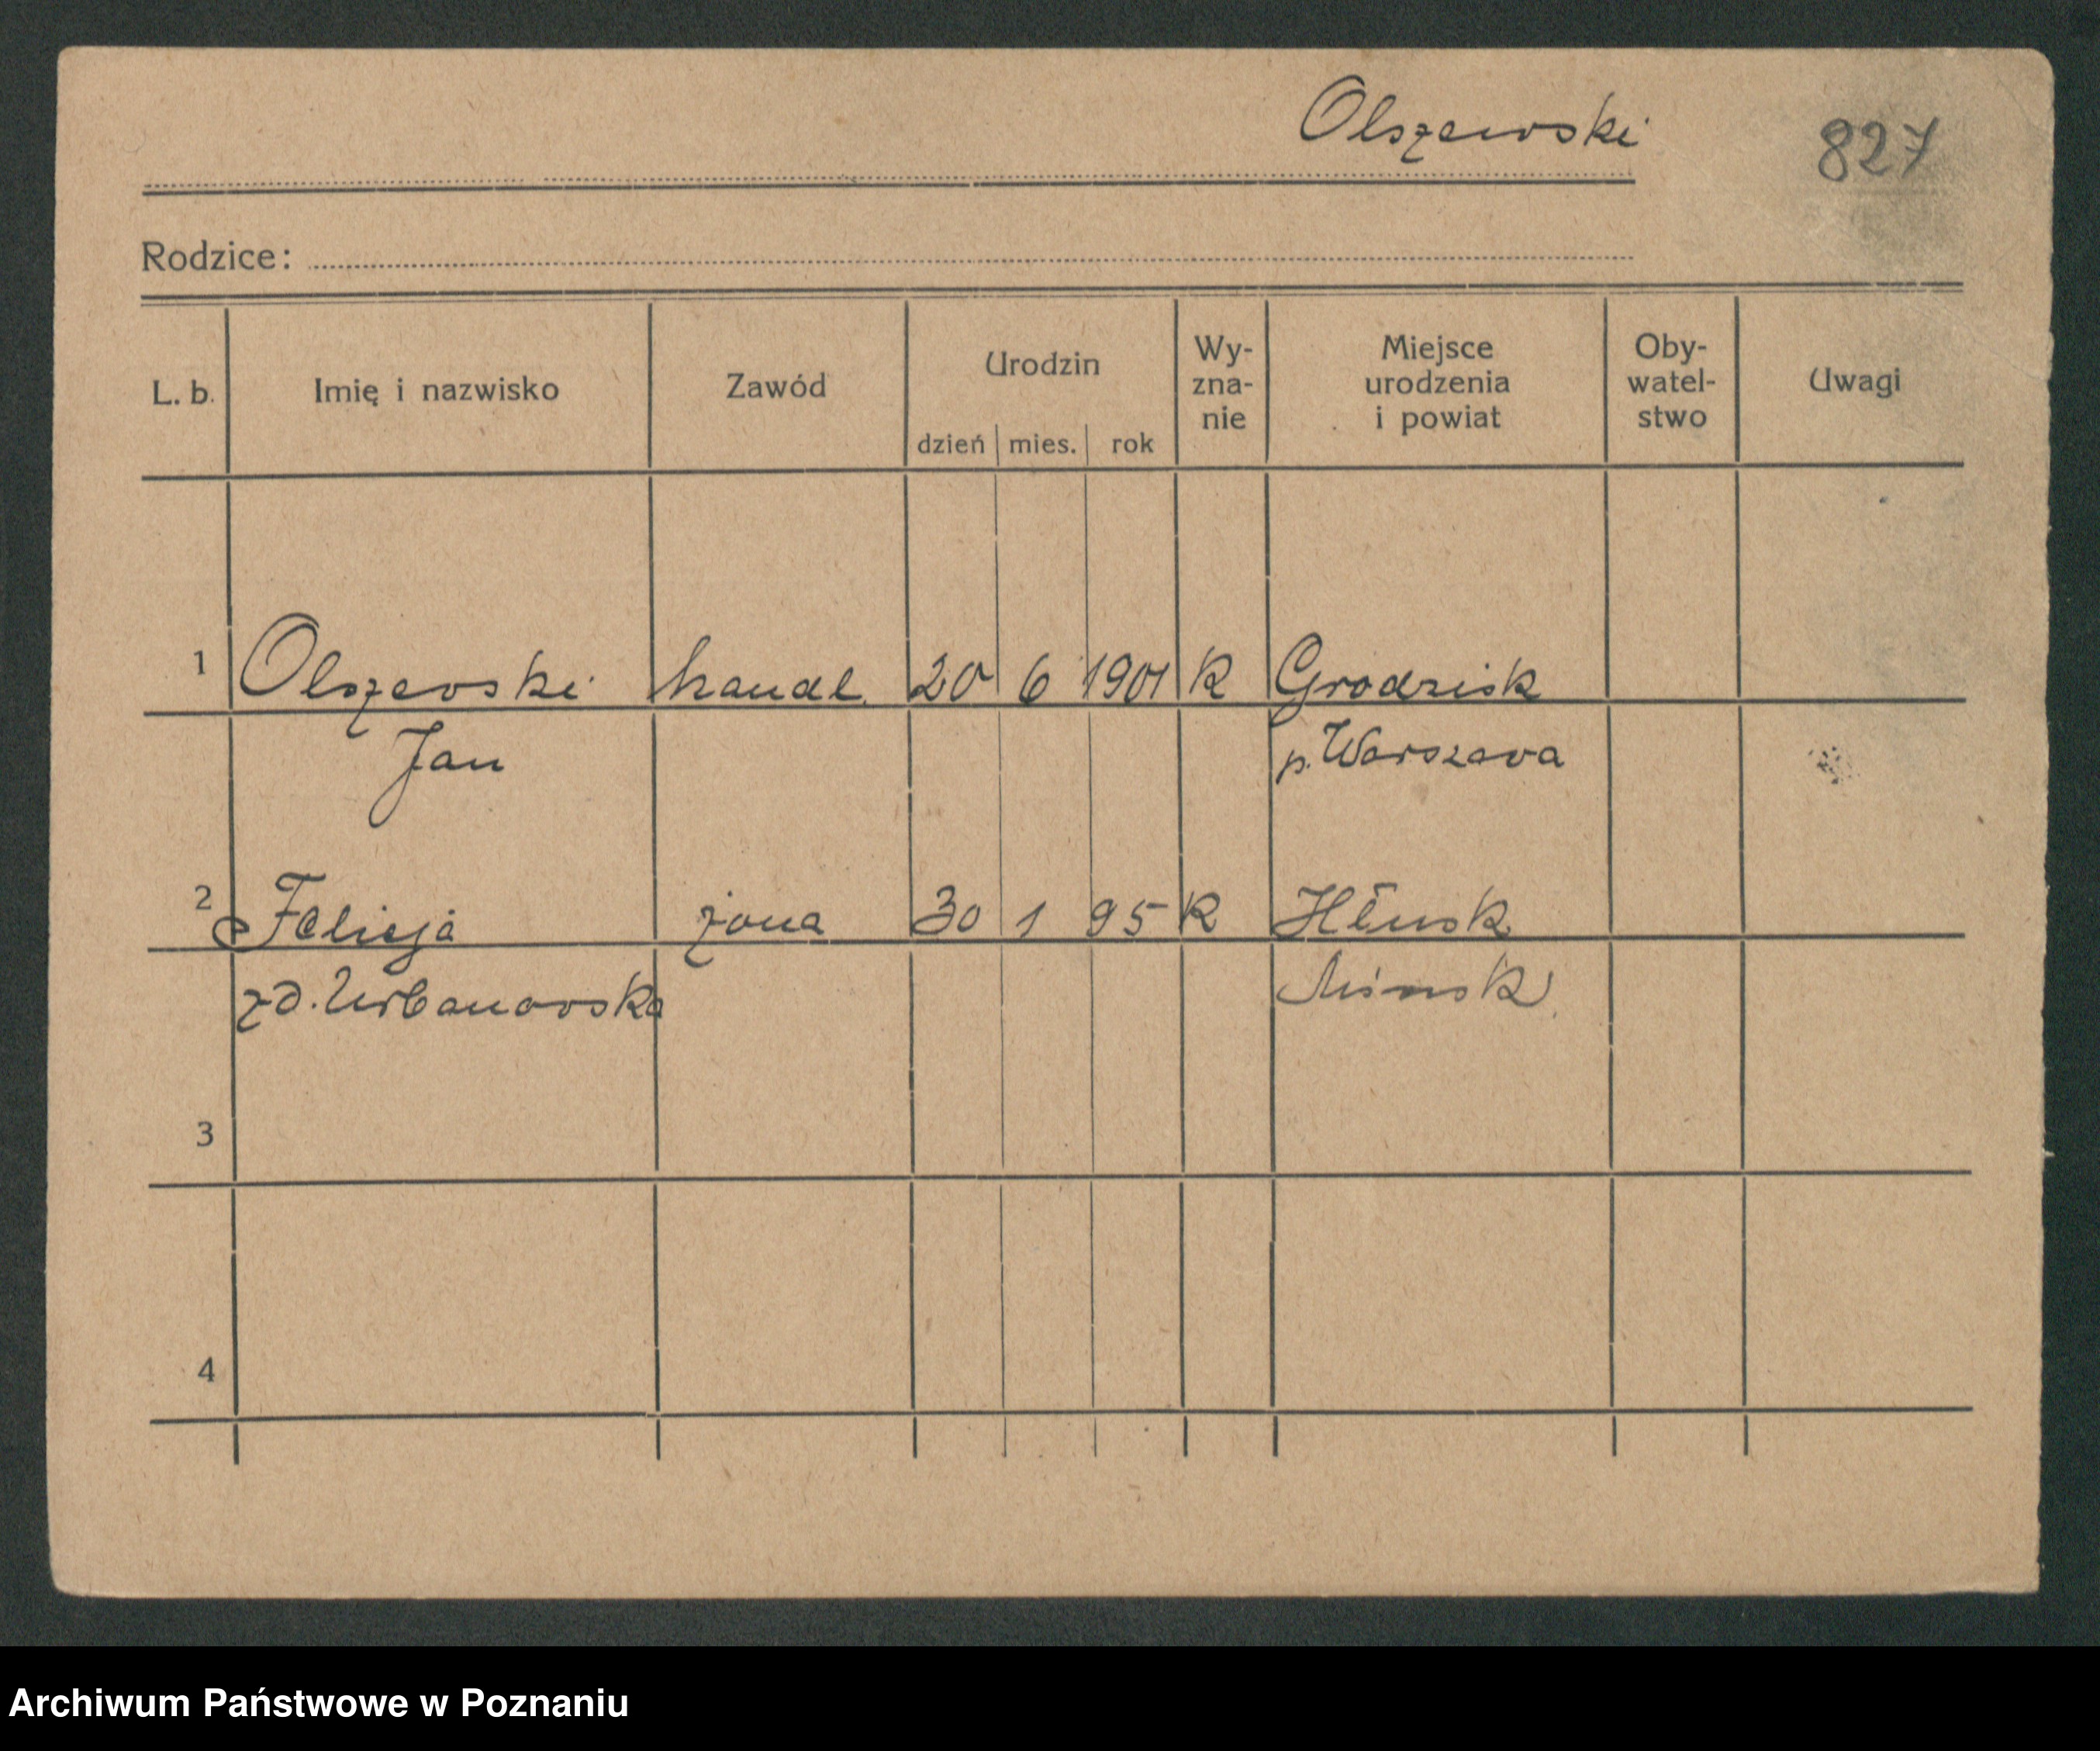 Olszewski 827
Rodzice:
L. b. Imię i nazwisko Zawód Urodzin dzień mies. rok Wy-zna-nie Miejsce urodzenia i powiat Oby-watel-stwo Uwagi
1 Olszewski handl. 20 6 1901 K Grodzisk
Jan p. Warszawa
2 Felicja żona 30 1 95 K Hłusk
zd. Urbanowska Mińsk
3
4
Archiwum Państwowe w Poznaniu